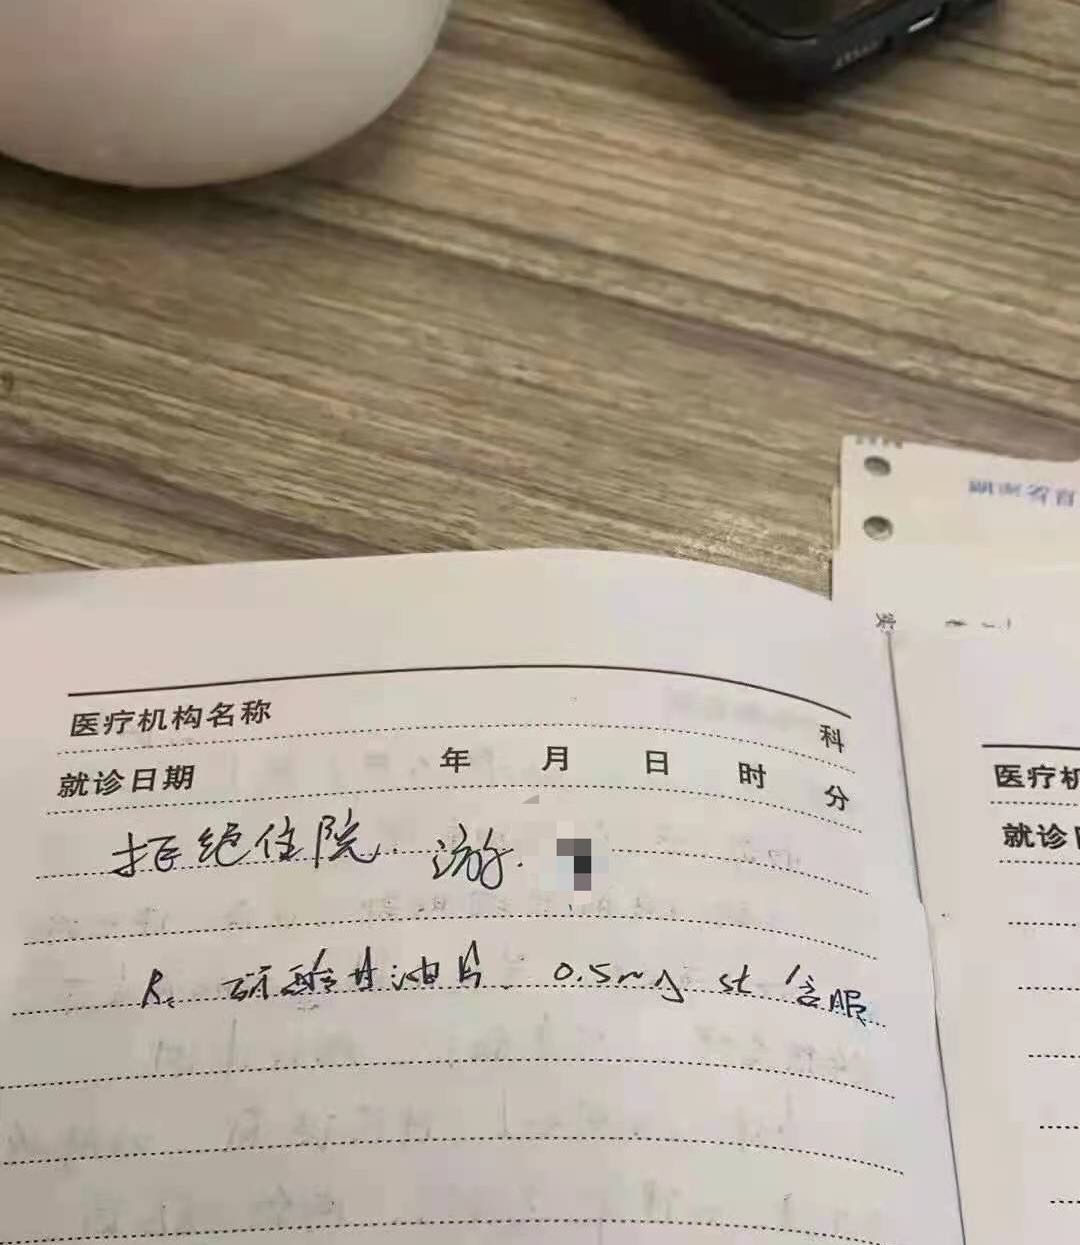 医疗机构名称 科
就诊日期 年 月 日 时 分
拒绝住院. 游.
R: 硝酸甘油片 0.5mg st 含服
医疗机
就诊日